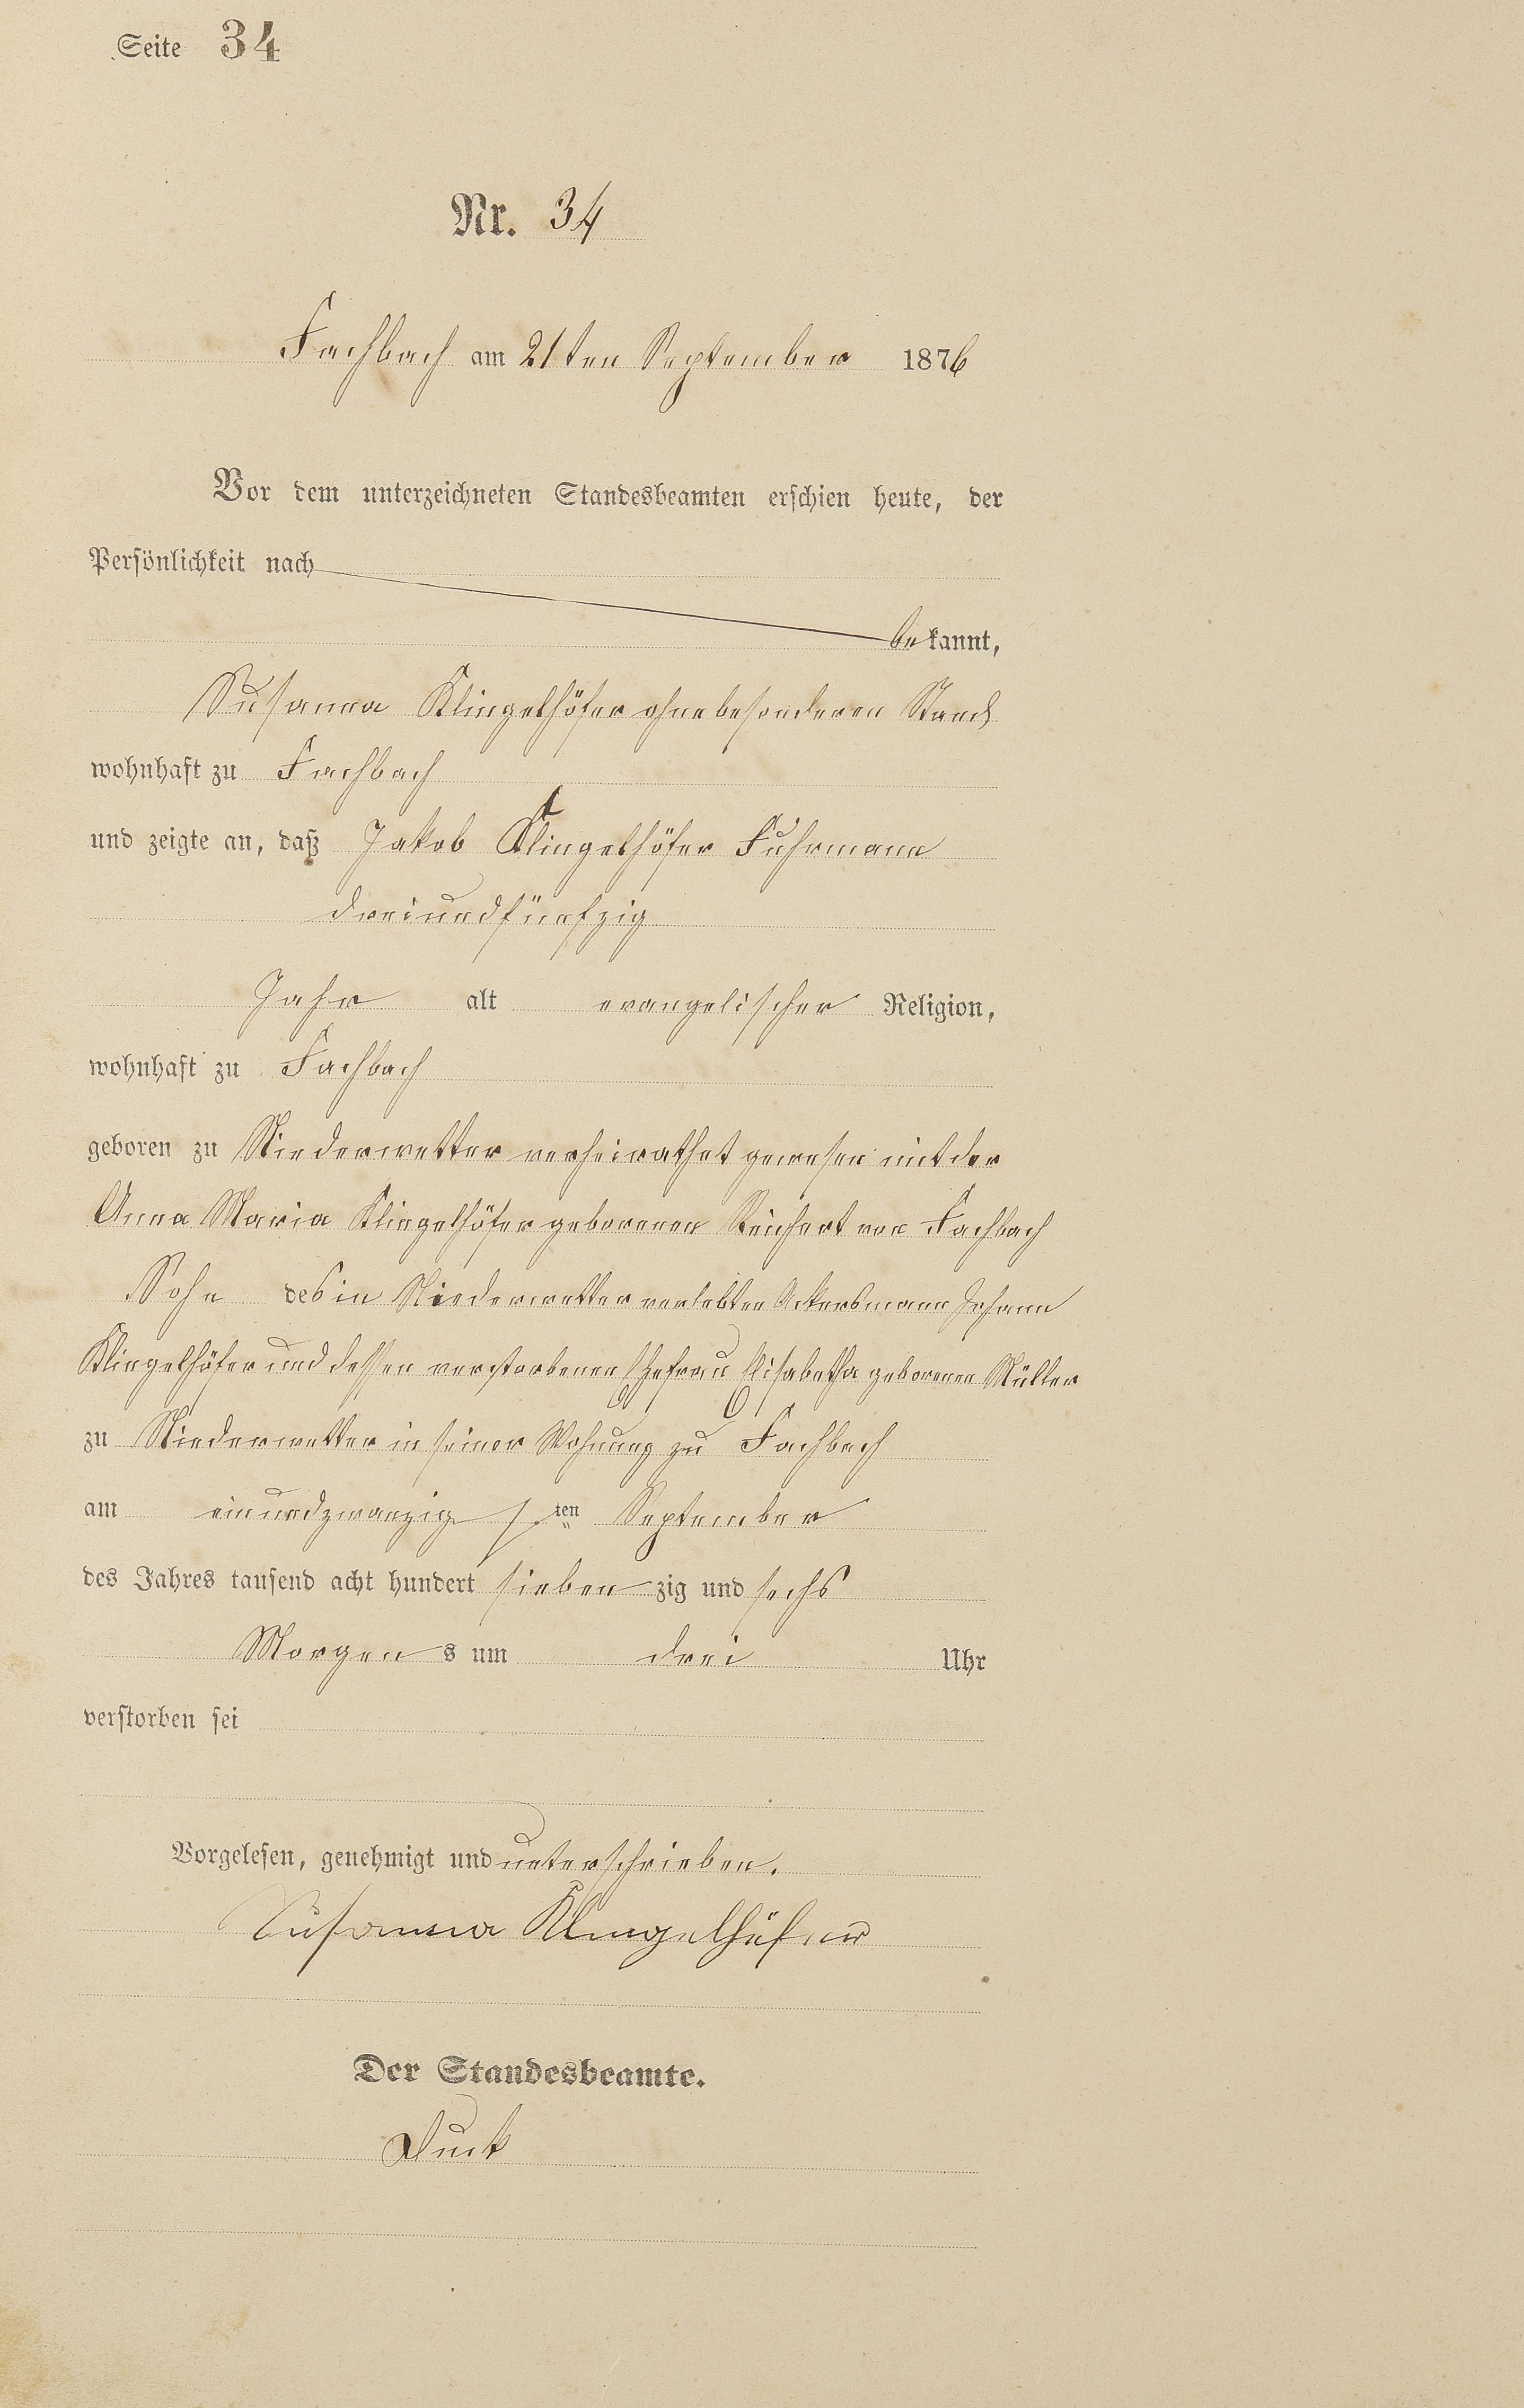 Seite 34
Nr. 34
Fachbach am 21ten September 1876
Vor dem unterzeichneten Standesbeamten erschien heute, der
Persönlichkeit nach
bekannt,
Susanna Klingelhöfer ohne besonderen Stand
wohnhaft zu Fachbach
und zeigte an, daß Jakob Klingelhöfer Fuhrmann
dreiundfünfzig
Jahr alt evangelischer Religion,
wohnhaft zu Fachbach
geboren zu Niederwetter verheirathet gewesen mit der
Anna Maria Klingelhöfer geborenen Reichert von Fachbach
Sohn des in Niederwetter verlebten Ackersmann Johann
Klingelhöfer und dessen verstorbenen Ehefrau Elisabetha geborenen Müller
zu Niederwetter in seiner Wohnung zu Fachbach
am einundzwanzigsten September
des Jahres tausend acht hundert siebenzig und sechs
Morgens um drei Uhr
verstorben sei
Vorgelesen, genehmigt und unterschrieben.
Susanna Klingelhöfer
Der Standesbeamte.
Duck